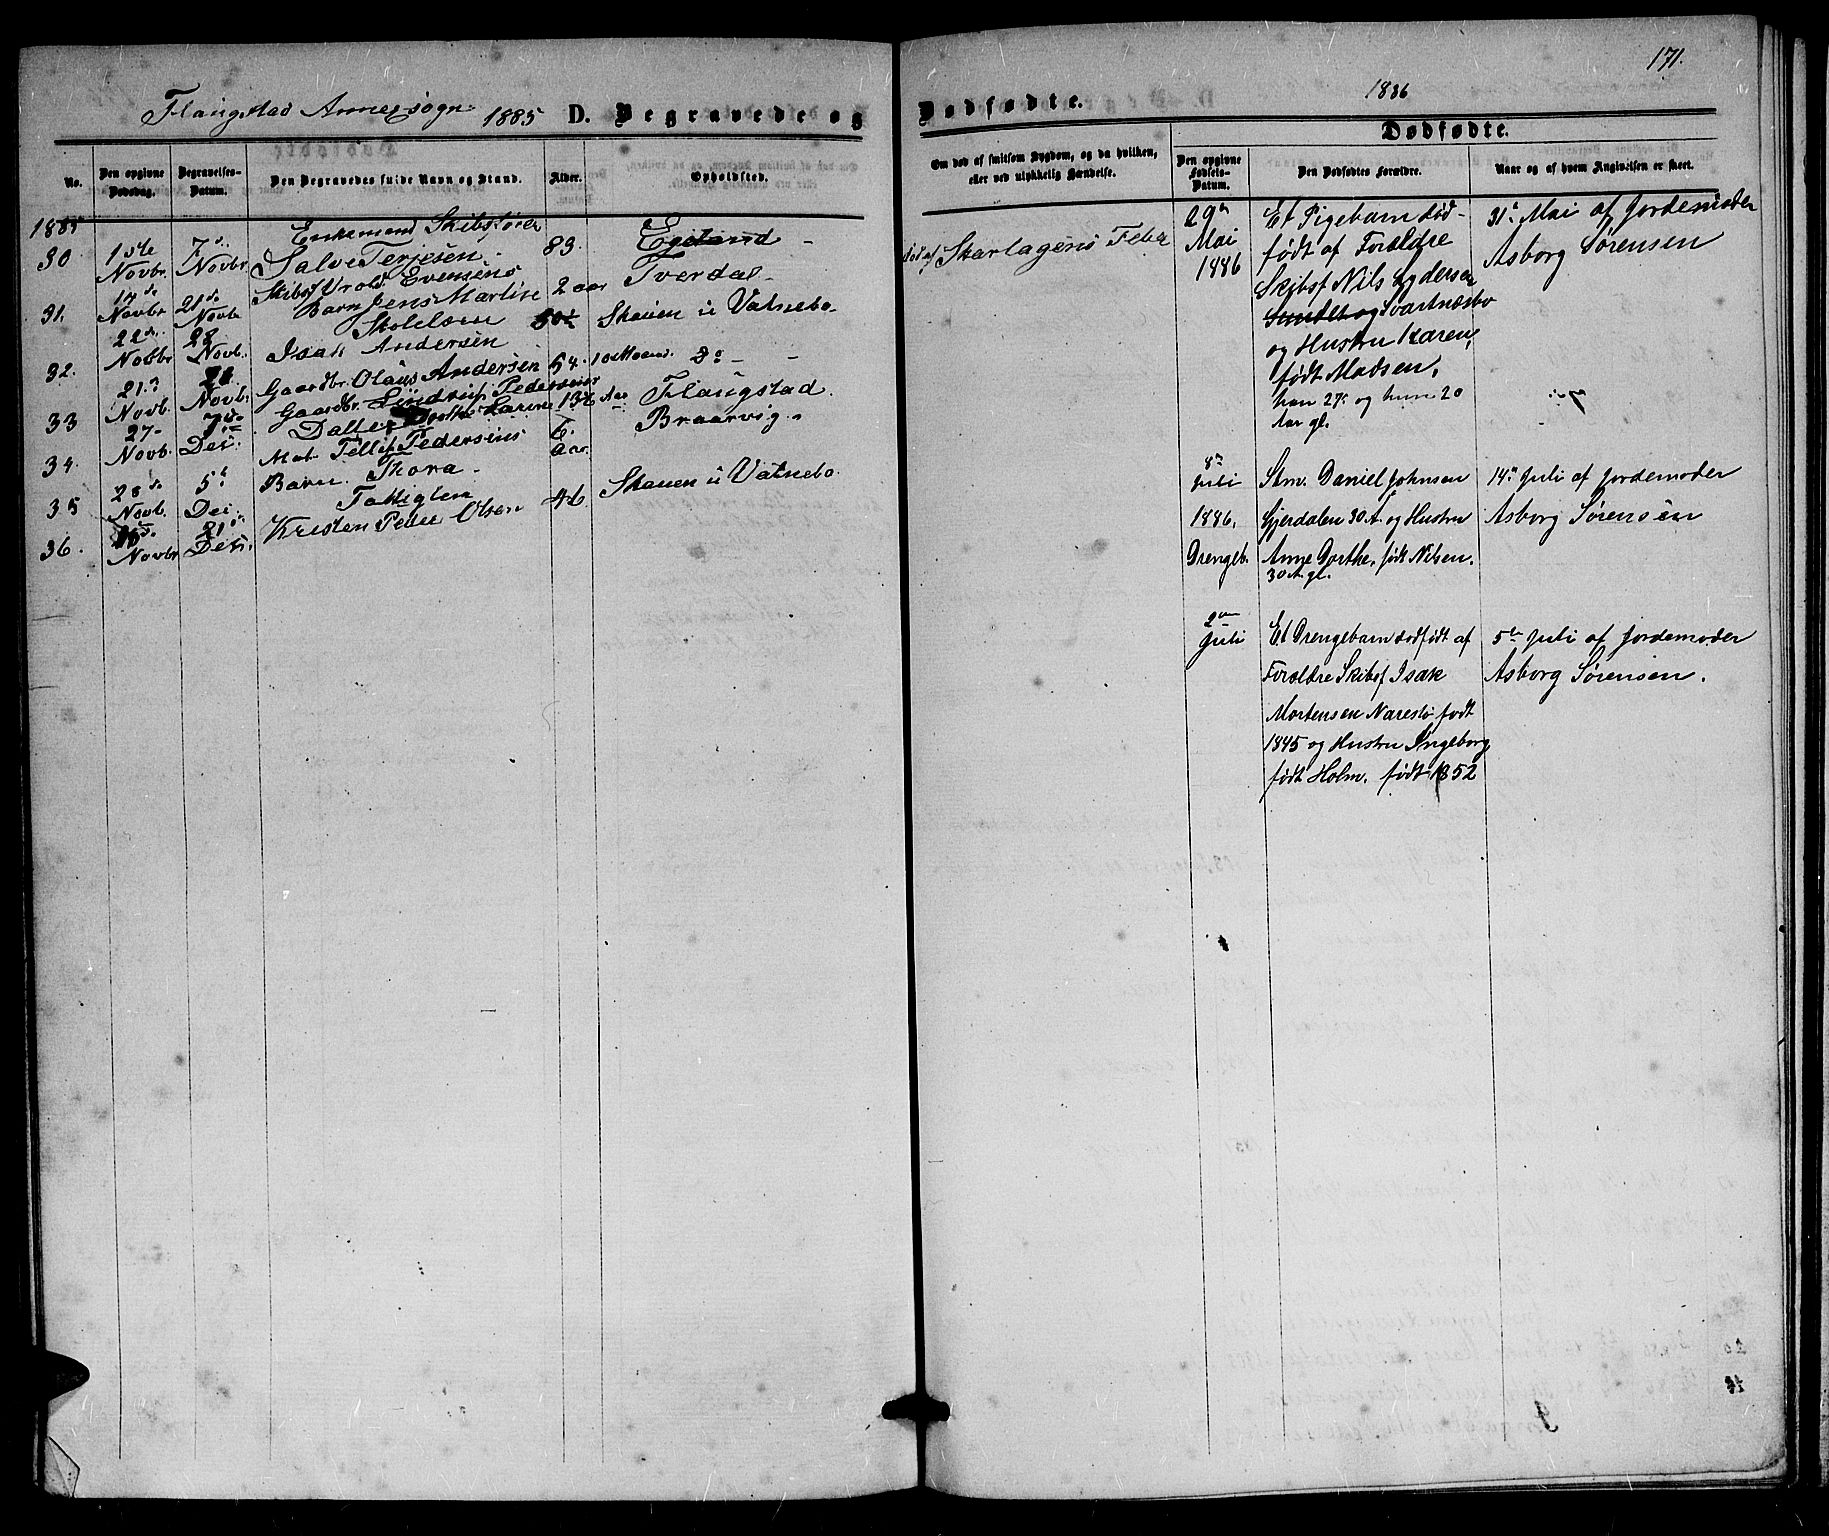 171.
Flangstad Annexsogn 1885 D. Begravede og
Dødfødte. 1886
No. Den opgivne Dødsdag. Begravelses-Datum. Den Begravedes fulde Navn og Stand. Alder. Opholdsted.
1885
30 1ste Novbr. 7de Novbr. Enkemand Skibsfører Salve Terjesen 83 Egeland
31. 14de Novbr 21de Novb. Evensens Barn Jens Martin 2 aar Tverdal
32. 22de Novbr 28 Novb. Skolelærer Isak Andersen Skauen i Vatnebo
33 21de Novb. Novbr. Gaardbr. Olaus Andersen 54. do
34. 27 Novb. 7de Dec. Gaardbr. Pedersens Datter Flangstad
35 28de Novb. 5te Dec. Mat. Tellef Pedersens Barn Thora 6 aar Braarvig
36. Novbr 21 Dec. Kristen Peder Olsen 46 Skauen i Vatnebo
Om død af smitsom Sygdom, og da hvilken, eller ved ulykkelig Hændelse.
død af Skarlagens Feber
Dødfødte.
Den opgivne Fødsels-Datum. Den Dødfødtes Forældre. Naar og af hvem Angivelsen er skeet.
29de Et Pigebarn død- 31te Mai af Jordemoder
Mai født af Forældre Asborg Sørensen
1886 Skibsf Nils Lydersen
og Svartnæsbo
og Hustru Karen,
født Madsen.
han 27 og hun 20
Aar gl.
8de Juli Stm. Daniel Johnsen 14de Juli af Jordemoder
1886. Gjerdalen 30 A. og Hustru Asborg Sørensen
Drengeb. Anne Dorthe, født Nilsen.
30 A. gl.
2den Juli Et Drengebarn dødfødt af 5te Juli af Jordemoder
Forældre Skibsf Isak Asborg Sørensen.
Mortensen Narestø født
1845 og Hustru Ingeborg
født Holm. født 1852